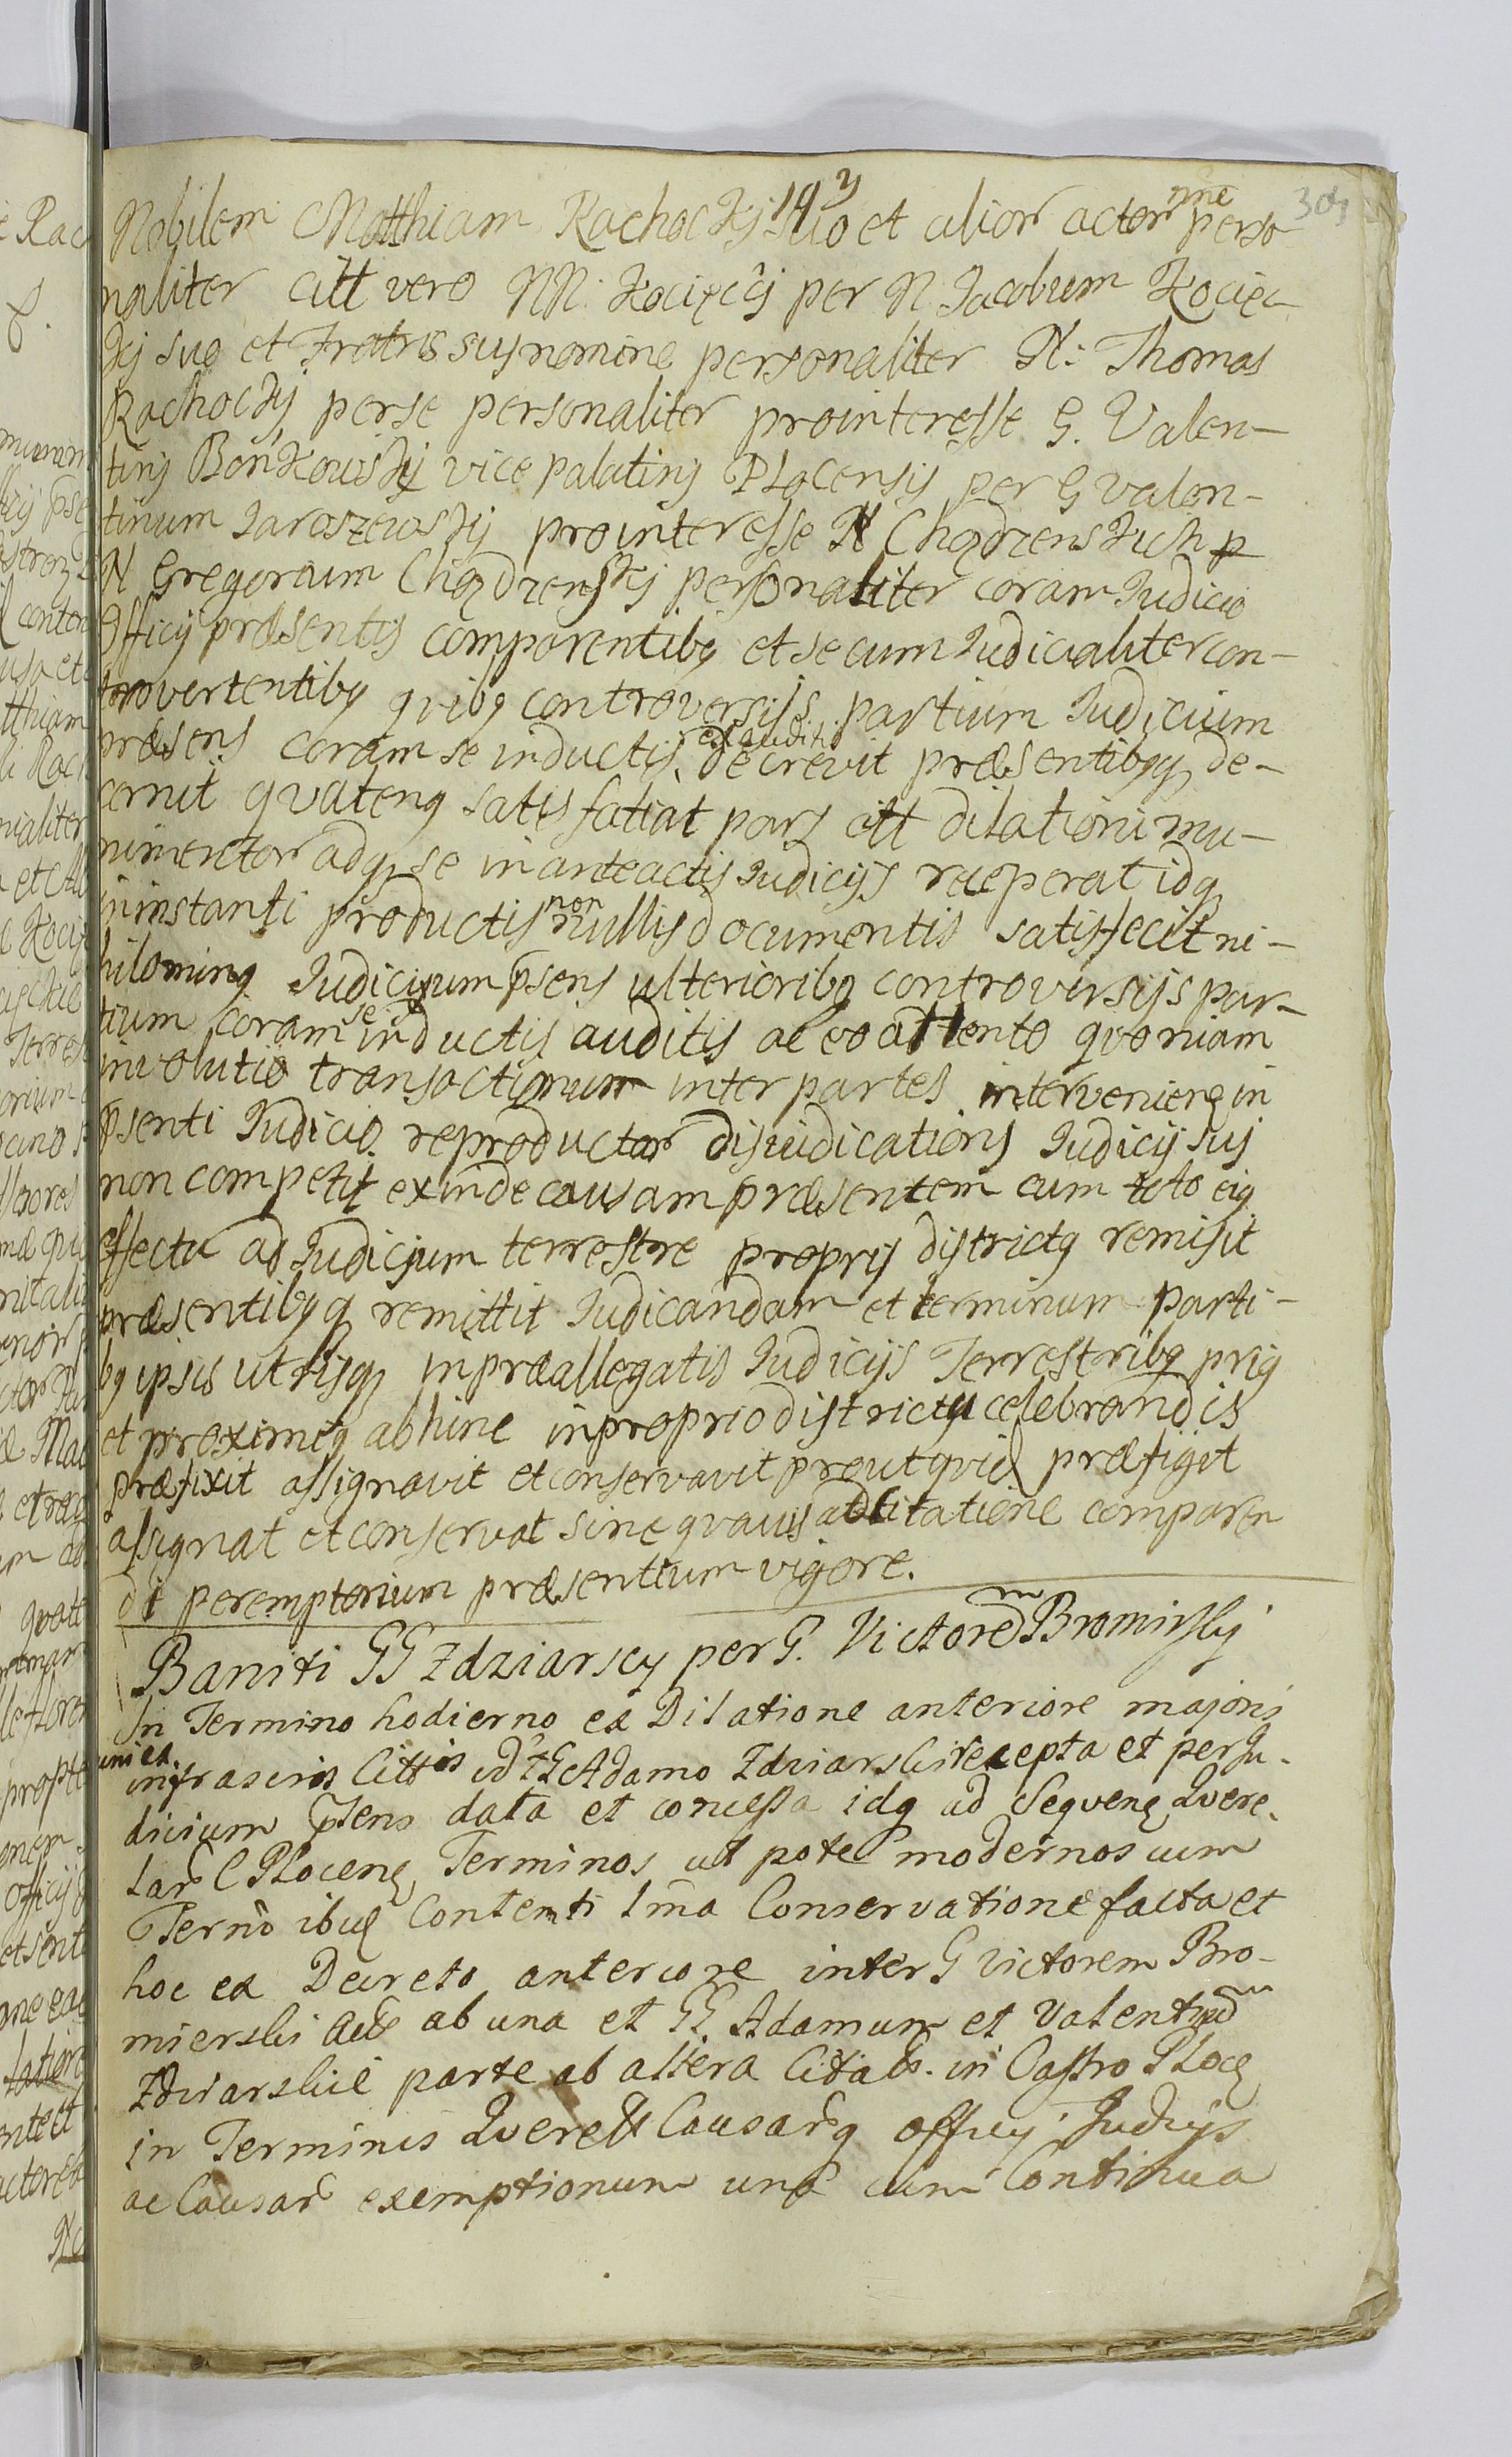 Nobilem Matthiam Rachockij suo et alior actor nne perso
naliter citt vero NN: Kocięcij per N Jacobum Kocięc
kij suo et Fratris suj nomine personaliter N: Thomas
Rachockij perse personaliter prointeresse G. Valen-
tinj Bońkowskij vice palatinj Plocensis per G Valen-
tinum Jaroszewskij prointeresse N Chądzenskich p
N Gregorium Chądzenskij personaliter coram Judicio
Officij præsentis comparentibq et secum Judicialiter con-
trovertentibq qvibq controversijs partium Judicium
præsens coram se inductis exauditis decrevit præsentibqq de-
cernit qvatenq satisfatiat pars citt dilationi mu-
nimentor adq se in anteactis Judicijs receperat idq
ininstanti productis non nullis documentis satisfecit ni-
hilominq Judicium psens ulterioribq controversijs par-
tium coram se inductis auditis ac eo attento qvoniam
involutio transactionum inter partes intervenienq in
psenti Judicio reproductar disiudicationis Judicij sui
non competit exinde causam præsentem cum toto eiq
effectu ad Judicium terrestre proprij districtq remisit
præsentibqq remittit Judicandam et terminum parti-
bq ipsis utrisqq in præallegatis Judicijs Terrestribq priq
et proximiq abhinc inproprio districtu celebrandis
præfixit assignavit et conservavit proutqvid præfigit
assignat et conservat sine qvavis adcitatione comparen
di peremptorium præsentium vigore.
Baniti GG Zdziarscy per G. Victorem Bromirskj
In Termino hodierno ex Dilatione anteriore majoris
infrascriis Cittis id GG Adamo Zdziarski recepta et per Ju-
dicium psens data et concessa idq ad Seqvenq Qvere-
lar C Plocenq Terminos ut pote modernos cum
Terno ibiq Contenti Ima Conservatione facta et
hoc ex Decreto anteriore inter G Victorem Bro-
mierski Act ab una et GG. Adamum et Valentinum
Zdziarskie parte ab altera Citatos. in Castro Ploc
in Terminis Qverell Causarq officij Judicijs
ac Causar exemptionum una cum Continua